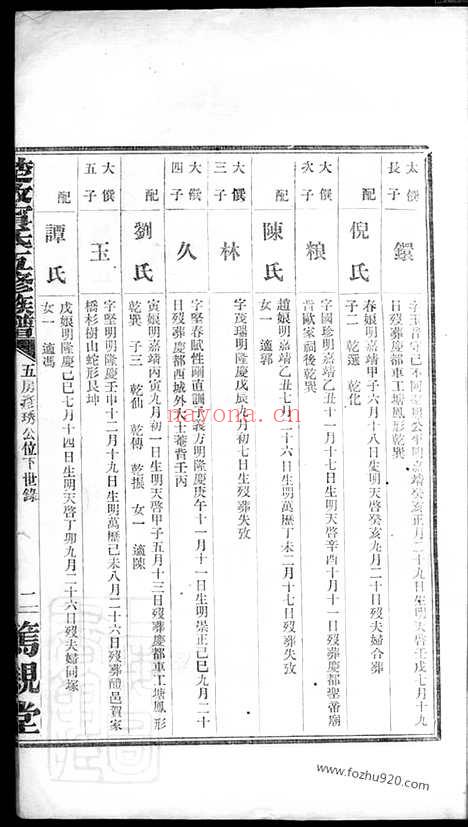 大饌長子 鐶
日歿葬慶都車工塘鳳形乾巽
配 倪氏
春娘明嘉靖甲子六月十八日生明天啓癸亥九月二十日歿夫婦合葬
子二 乾選 乾化
大饌次子 粮
字國珍明嘉靖乙丑十一月十七日生明天啓辛酉十月十一日歿葬慶都聖帝廟
背歐家祠後乾巽
配 陳氏
趙娘明嘉靖乙丑七月二十六日生明萬歷丁未二月十七日歿葬失攷
女一 適郭
大饌三子 林
字茂瑞明隆慶戊辰七月初七日生歿葬失攷
大饌四子 久
字堅春賦性䩄直訓子義方明隆慶庚午十一月十一日生明崇正己巳九月二十
日歿葬慶都西城外大士菴背壬丙
配 劉氏
寅娘明嘉靖丙寅九月初一日生明天啓甲子五月十三日歿葬慶都車工塘鳳形
乾巽 子三 乾仙 乾傳 乾振 女一 適陳
大饌五子 玉
字堅明隆慶壬申十二月十九日生明萬歷己未八月二十六日歿葬醴邑賀家
橋杉樹山蛇形艮坤
配 譚氏
戊娘明隆慶己巳七月十四日生明天啓丁卯九月二十六日歿夫婦同塚
女一 適馮
五修族譜
五房彥琇公位下世錄
二
篤親堂
nayona.cn
www.fozhu920.com